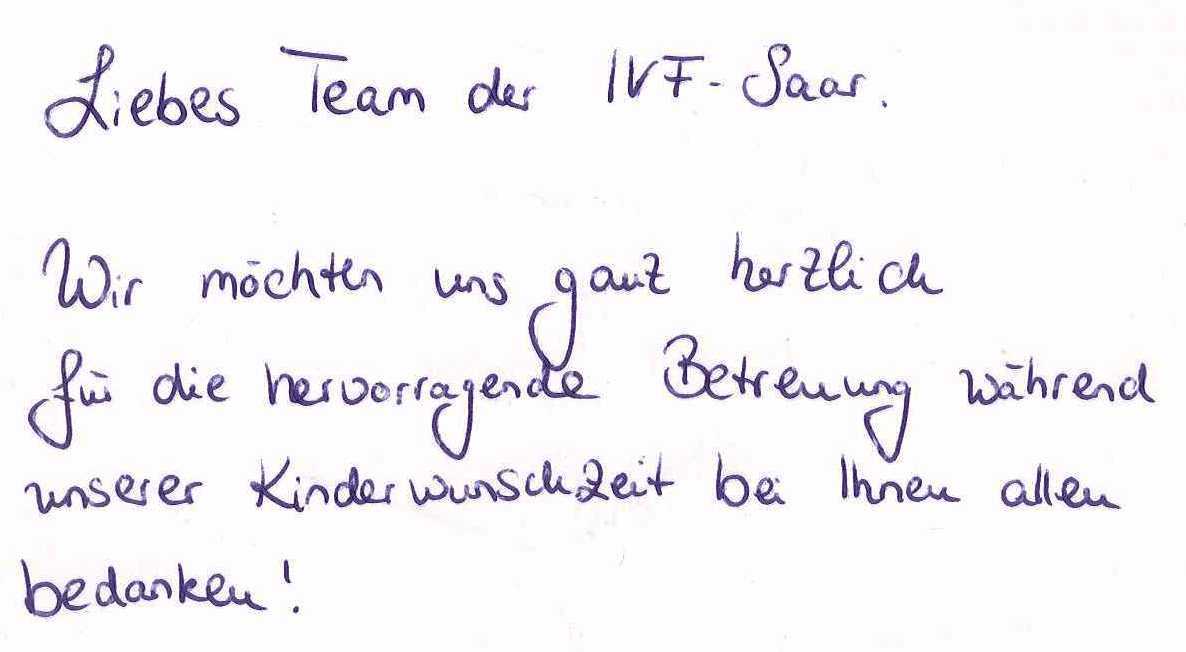 Liebes Team der IVF-Saar.
Wir möchten uns ganz herzlich
für die hervorragende Betreuung während
unserer Kinderwunschzeit bei Ihnen allen
bedanken!